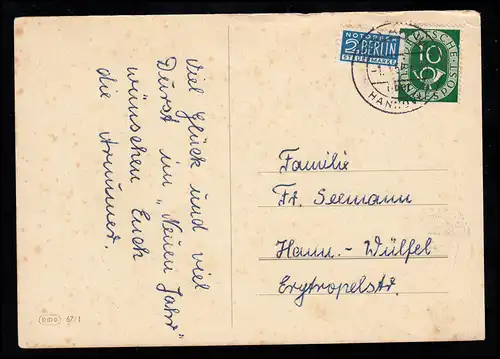 Viel Glück und viel
Durst im „Neuen Jahr"
wünschen Euch
die Brummer.
NOTOPFER
2 BERLIN
STEUERMARKE
DEUTSCHE
BUNDESPOST
10
HANNOVER
Familie
Fr. Seemann
Hann.-Wülfel
Ergtropelstr.
67/1